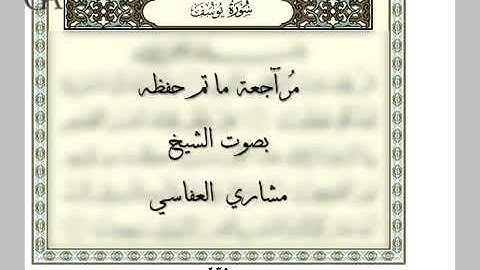 سُورَةُ يُوسُفَ
مُرآجعة ما تم حفظه
بصوت الشيخ
مشاري العفاسي